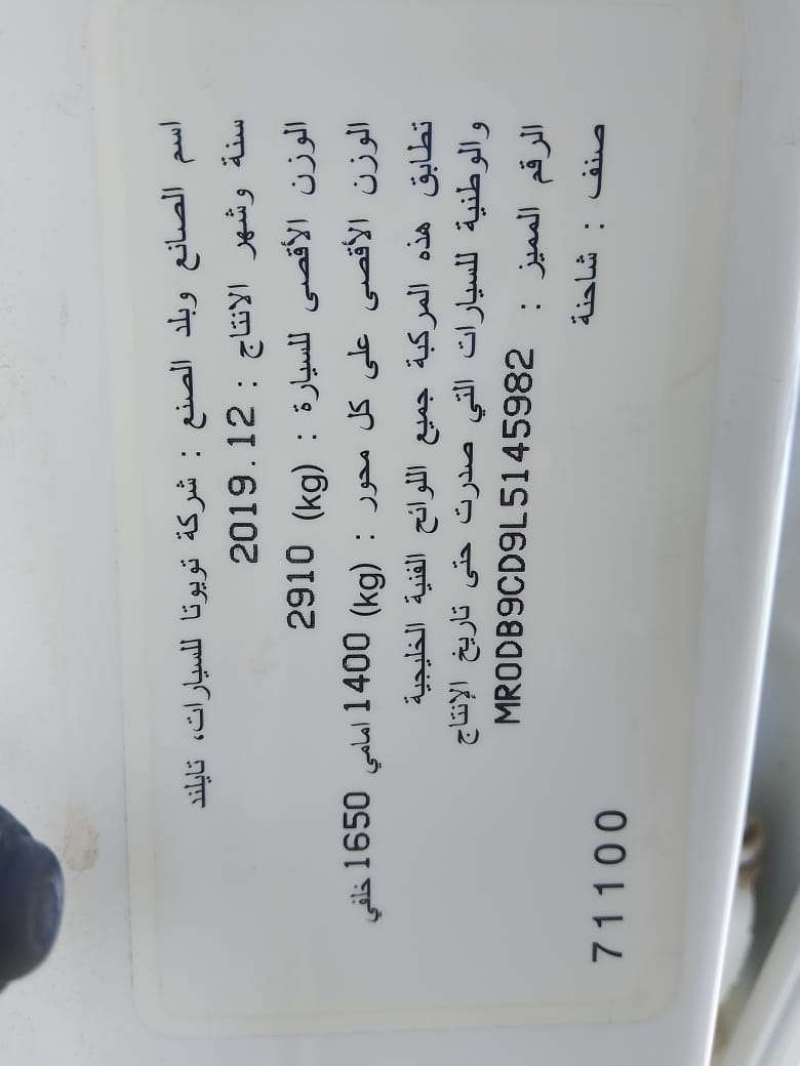 اسم الصانع وبلد الصنع : شركة تويوتا للسيارات، تايلند
سنة وشهر الانتاج : 2019.12
الوزن الأقصى للسيارة : (kg) 2910
الوزن الأقصى على كل محور : (kg) 1400 امامي 1650 خلفي
تطابق هذه المركبة جميع اللوائح الفنية الخليجية
والوطنية للسيارات التي صدرت حتى تاريخ الإنتاج
الرقم المميز : MR0DB9CD9L5145982
صنف : شاحنة
71100